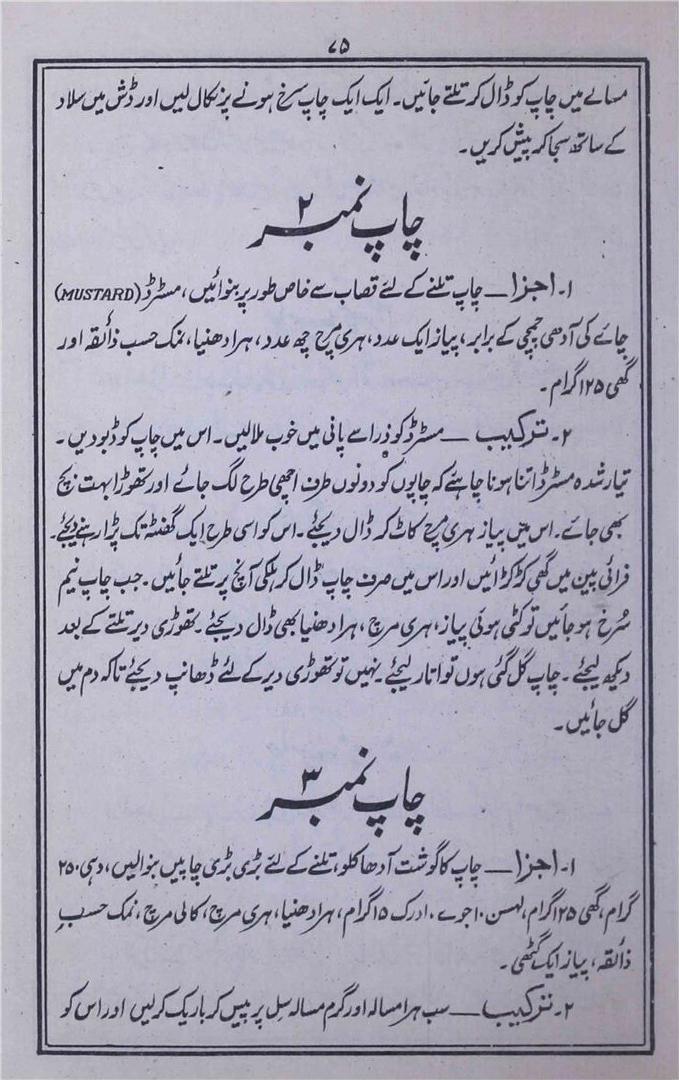 ۷۵
مسالے میں چاپ کو ڈال کر تلتے جائیں۔ ایک ایک چاپ سرخ ہونے پر نکال لیں اور ڈش میں سلاد
کے ساتھ سجا کر پیش کریں۔
چاپ نمبر ۲
۱۔ اجزا — چاپ تلنے کے لئے قصاب سے خاص طور پر بنوائیں، مسٹرڈ (MUSTARD)
چائے کی آدھی چمچی کے برابر، پیاز ایک عدد، ہری مرچ چھ عدد، ہرا دھنیا، نمک حسب ذائقہ اور
گھی ۱۲۵ گرام۔
۲۔ ترکیب — مسٹرڈ کو ذرا سے پانی میں خوب ملا لیں۔ اس میں چاپ کو ڈبو دیں۔
تیار شدہ مسٹرڈ اتنا ہونا چاہئے کہ چاپوں کو دونوں طرف اچھی طرح لگ جائے اور تھوڑا بہت بچ
بھی جائے۔ اس میں پیاز ہری مرچ کاٹ کر ڈال دیجئے۔ اس کو اسی طرح ایک گھنٹہ تک پڑا رہنے دیجئے۔
فرائی پین میں گھی کڑکڑائیں اور اس میں صرف چاپ ڈال کر ہلکی آنچ پر تلتے جائیں۔ جب چاپ نیم
سُرخ ہو جائیں تو کٹی ہوئی پیاز، ہری مرچ، ہرا دھنیا بھی ڈال دیجئے۔ تھوڑی دیر تلنے کے بعد
دیکھ لیجئے۔ چاپ گل گئی ہوں تو اتار لیجئے۔ نہیں تو تھوڑی دیر کے لئے ڈھانپ دیجئے تاکہ دم میں
گل جائیں۔
چاپ نمبر ۳
۱۔ اجزا — چاپ کا گوشت آدھا کلو، تلنے کے لئے بڑی بڑی چاپیں بنوا لیں، دہی ۲۵۰
گرام، گھی ۱۲۵ گرام، لہسن ۱۰ جوے، ادرک ۱۵ گرام، ہرا دھنیا، ہری مرچ، کالی مرچ، نمک حسبِ
ذائقہ، پیاز ایک گٹھی۔
۲۔ ترکیب — سب ہرا مسالہ اور گرم مسالہ سِل پر پیس کر باریک کر لیں اور اس کو